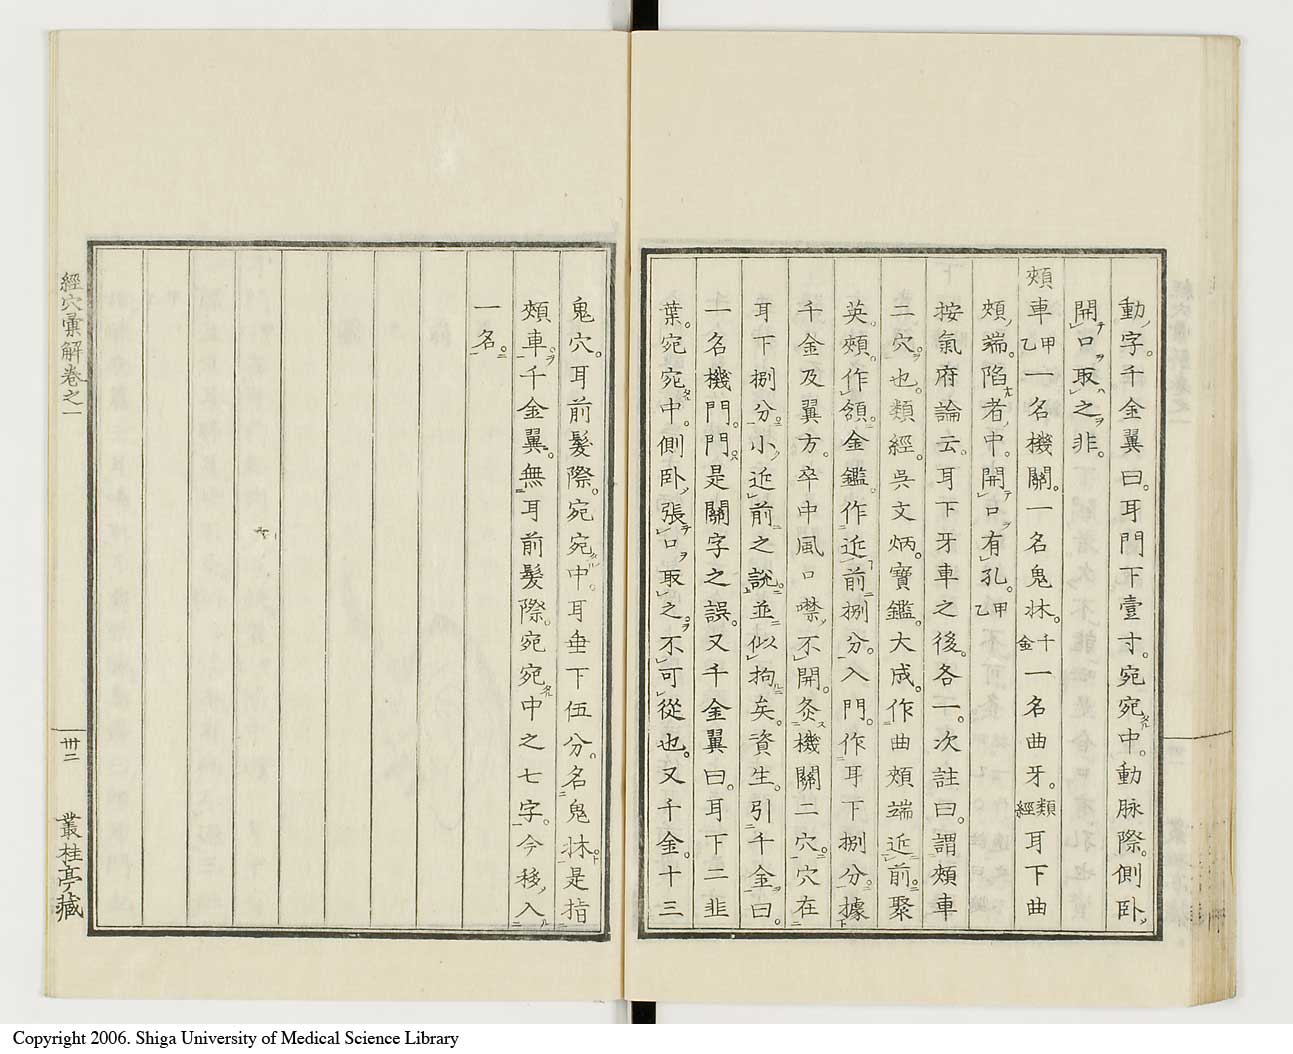 動字。千金翼曰。耳門下壹寸。宛宛中。動脉際。側卧
開口取之非。
頰車甲乙一名機關。一名鬼牀。千金一名曲牙。類經耳下曲
頰端。陷者中。開口有孔。甲乙
按氣府論云。耳下牙車之後。各一。次註曰。謂頰車
二穴也。類經。吳文炳。寶鑑。大成。作曲頰端近前。聚
英。頰作頷。金鑑。作近前捌分。入門。作耳下捌分。據
千金及翼方。卒中風口噤不開。灸機關二穴。穴在
耳下捌分。小近前之說。並似拘矣。資生。引千金曰。
一名機門。門是關字之誤。又千金翼曰。耳下二韭
葉。宛宛中。側卧張口取之。不可從也。又千金。十三
鬼穴。耳前髮際。宛宛中。耳垂下伍分。名鬼牀。是指
頰車。千金翼。無耳前髮際。宛宛中之七字。今移入
一名。
經穴彙解卷之一
卅二
叢桂亭藏
Copyright 2006. Shiga University of Medical Science Library